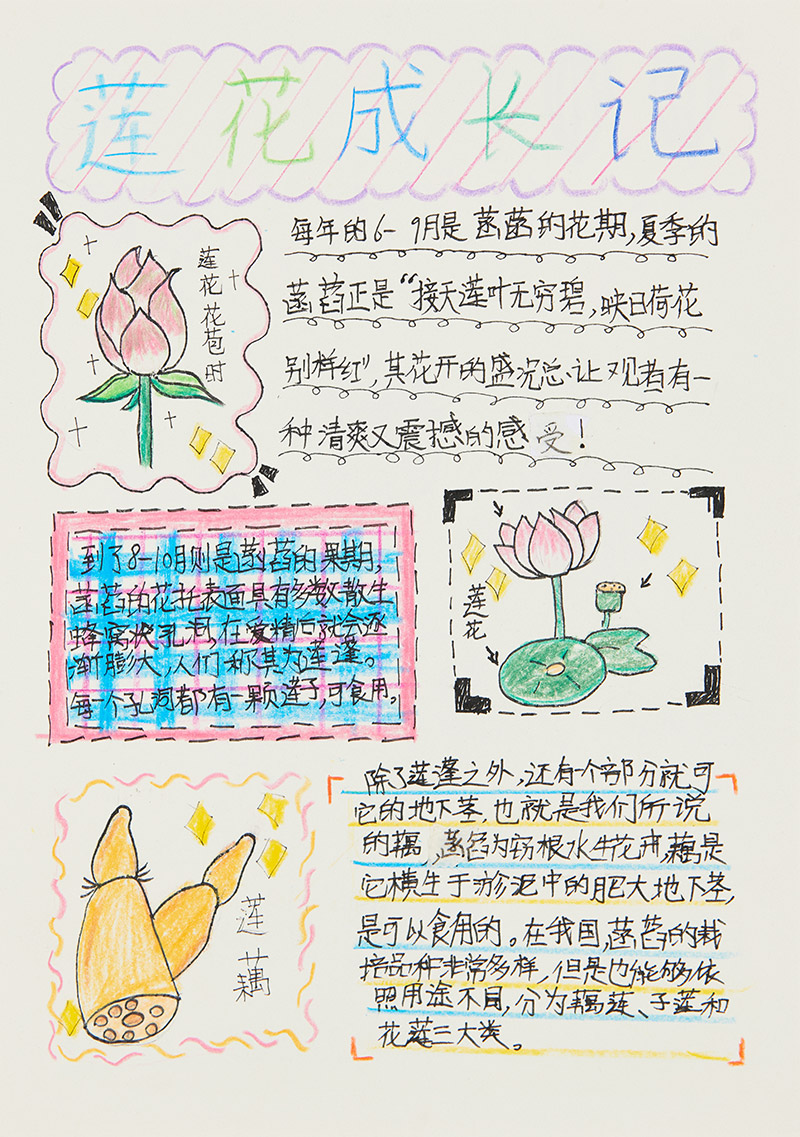 莲花成长记
莲花花苞时
每年的6-9月是菡萏的花期,夏季的
菡萏正是“接天莲叶无穷碧,映日荷花
别样红”,其花开的盛况总让观者有一
种清爽又震撼的感受!
到了8-10月则是菡萏的果期,
菡萏的花托表面具有多数散生
蜂窝状孔洞,在受精后就会逐
渐膨大,人们称其为莲蓬。
每一个孔洞都有一颗莲子,可食用。
莲花
莲藕
除了莲蓬之外,还有一个部分就可
它的地下茎,也就是我们所说
的藕,菡萏为宿根水生花卉,藕是
它横生于淤泥中的肥大地下茎,
是可以食用的。在我国,菡萏的栽
培品种非常多样,但是也能够依
照用途不同,分为藕莲、子莲和
花莲三大类。